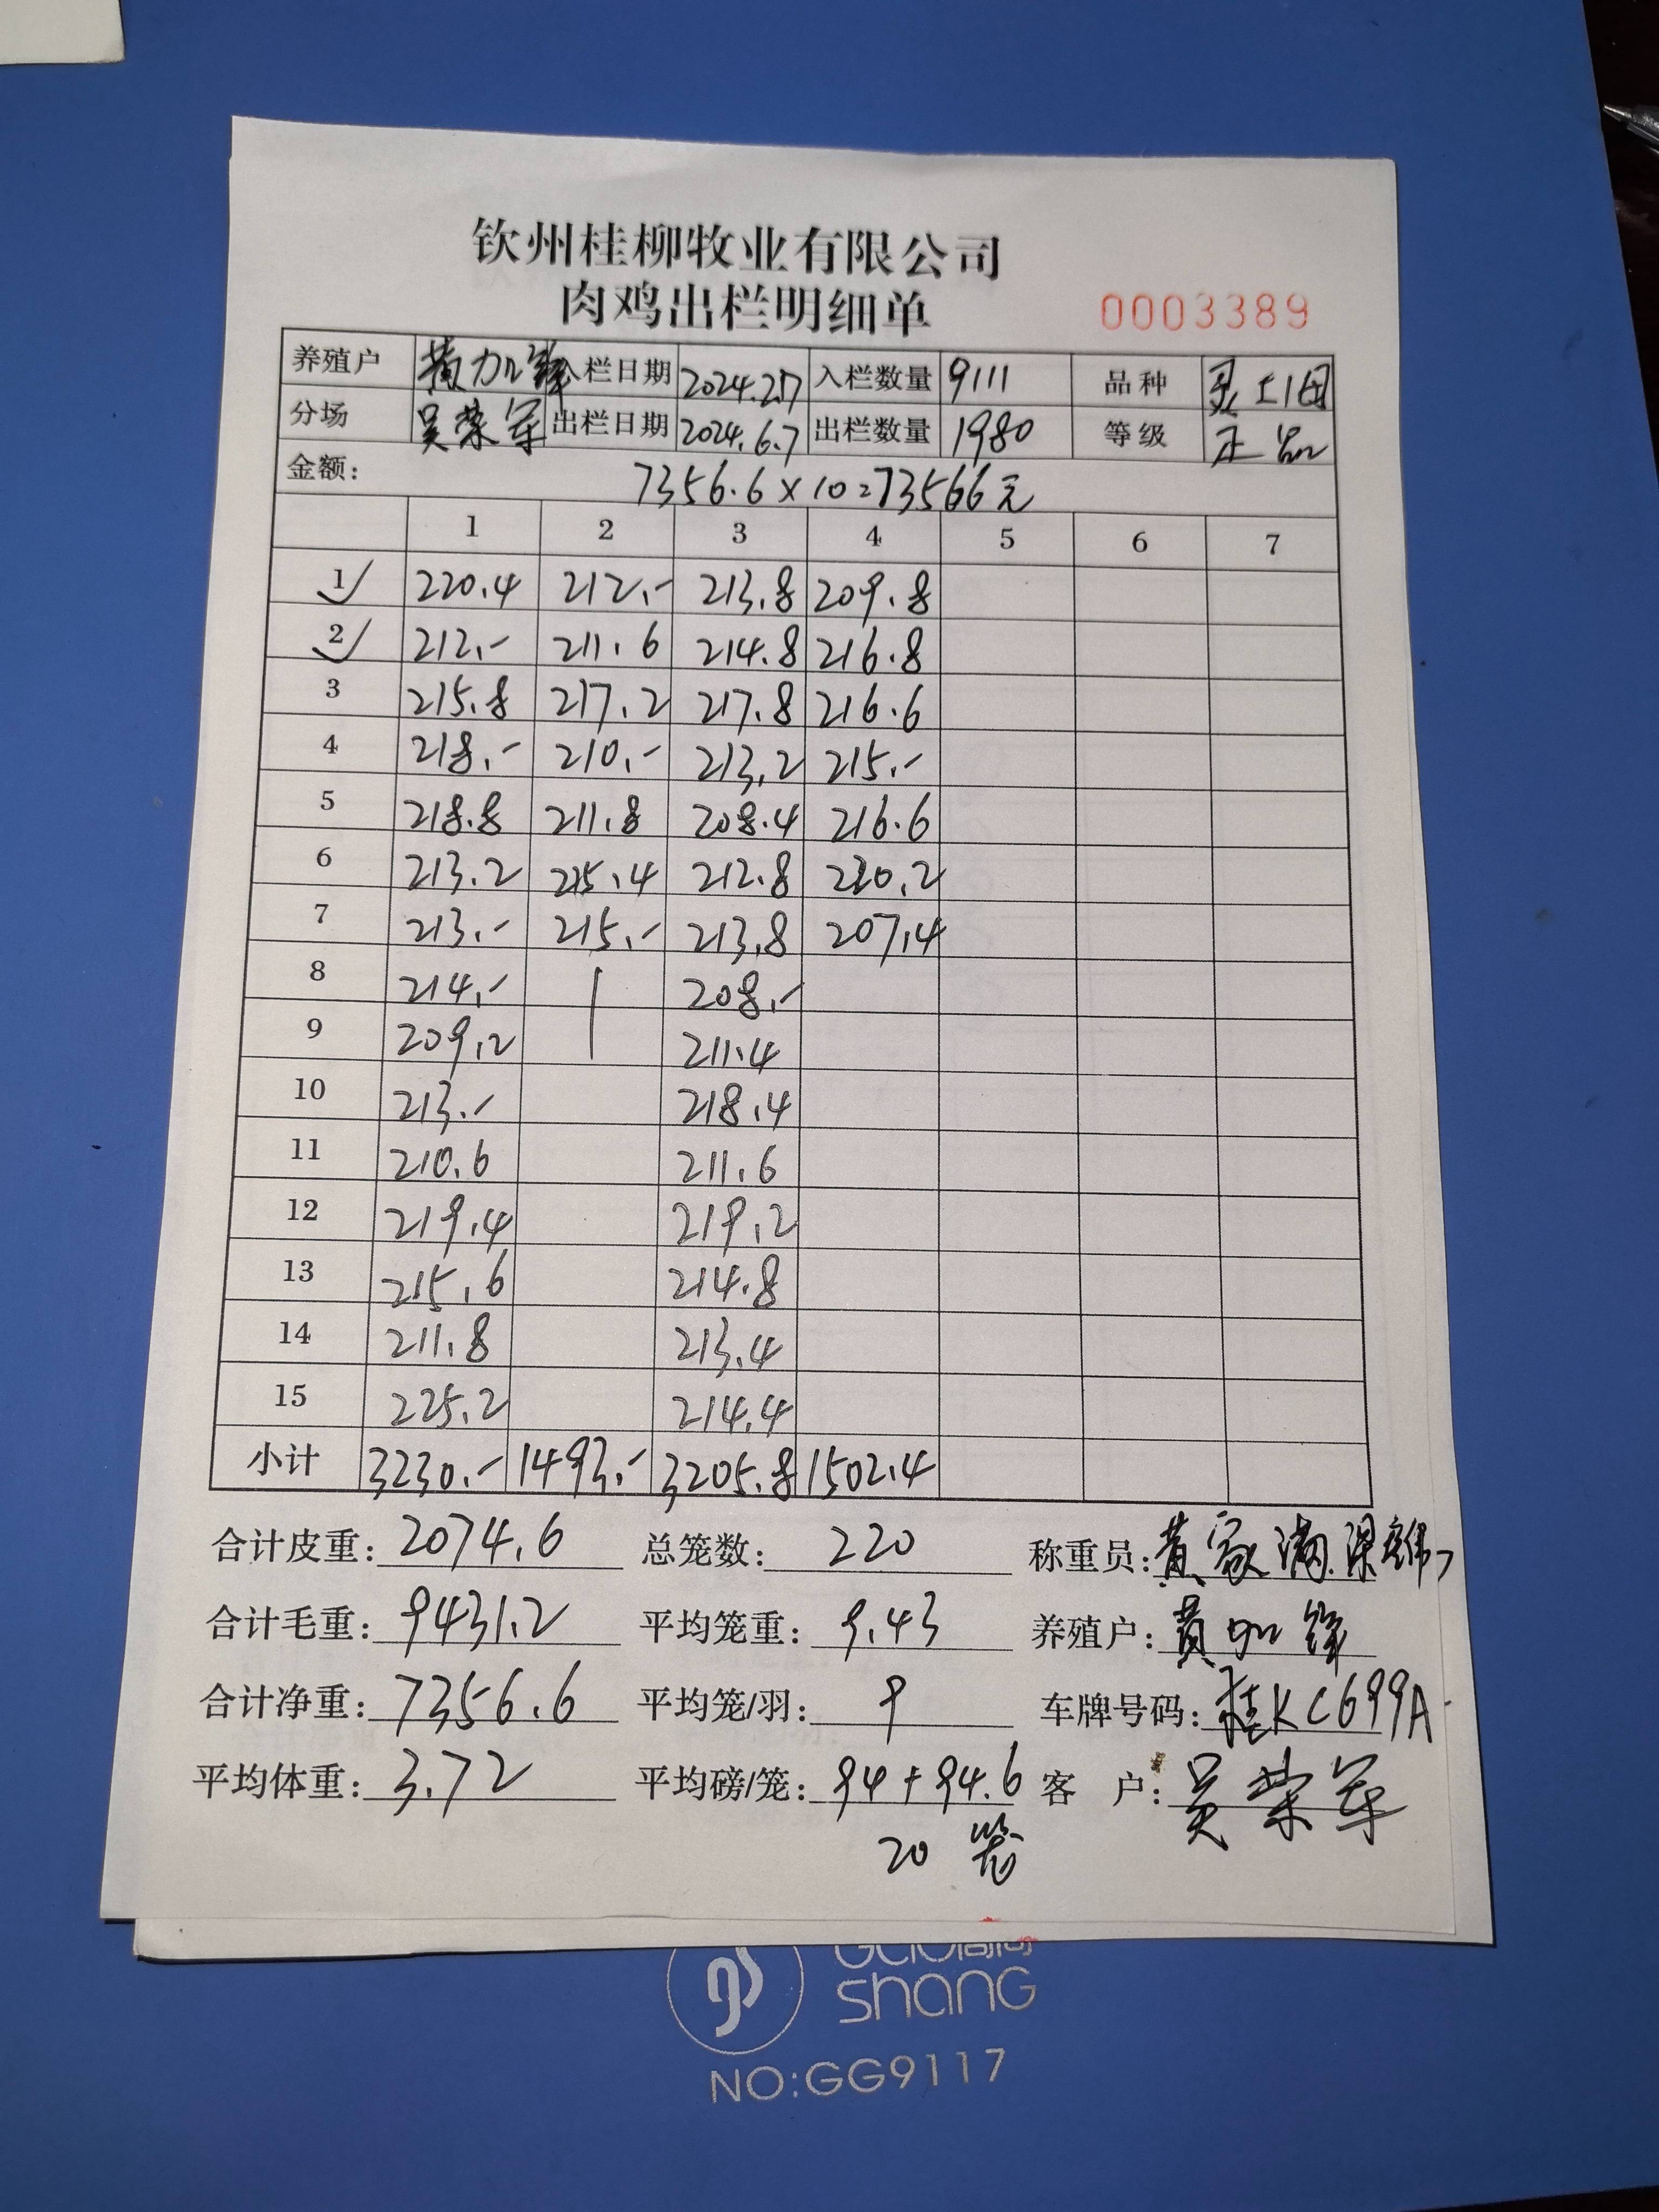 钦州桂柳牧业有限公司
肉鸡出栏明细单 0003389
养殖户 黄加锋 入栏日期 2024.2.17 入栏数量 9111 品种
分场 吴荣军 出栏日期 2024.6.7 出栏数量 1980 等级 正品
金额: 7356.6×10=73566元
1 2 3 4 5 6 7
1 220.4 212.- 213.8 209.8
2 212.- 211.6 214.8 216.8
3 215.8 217.2 217.8 216.6
4 218.- 210.- 213.2 215.-
5 218.8 211.8 208.4 216.6
6 213.2 215.4 212.8 220.2
7 213.- 215.- 213.8 207.4
8 214.- 208.-
9 209.2 211.4
10 213.- 218.4
11 210.6 211.6
12 219.4 219.2
13 215.6 214.8
14 211.8 213.4
15 225.2 214.4
小计 3230.- 1493.- 3205.8 1502.4
合计皮重: 2074.6 总笼数: 220 称重员: 黄家满
合计毛重: 9431.2 平均笼重: 9.43 养殖户: 黄加锋
合计净重: 7356.6 平均笼/羽: 9 车牌号码: 桂KC699A
平均体重: 3.72 平均磅/笼: 94+94.6 客 户: 吴荣军
20 笼
shang
NO:GG9117